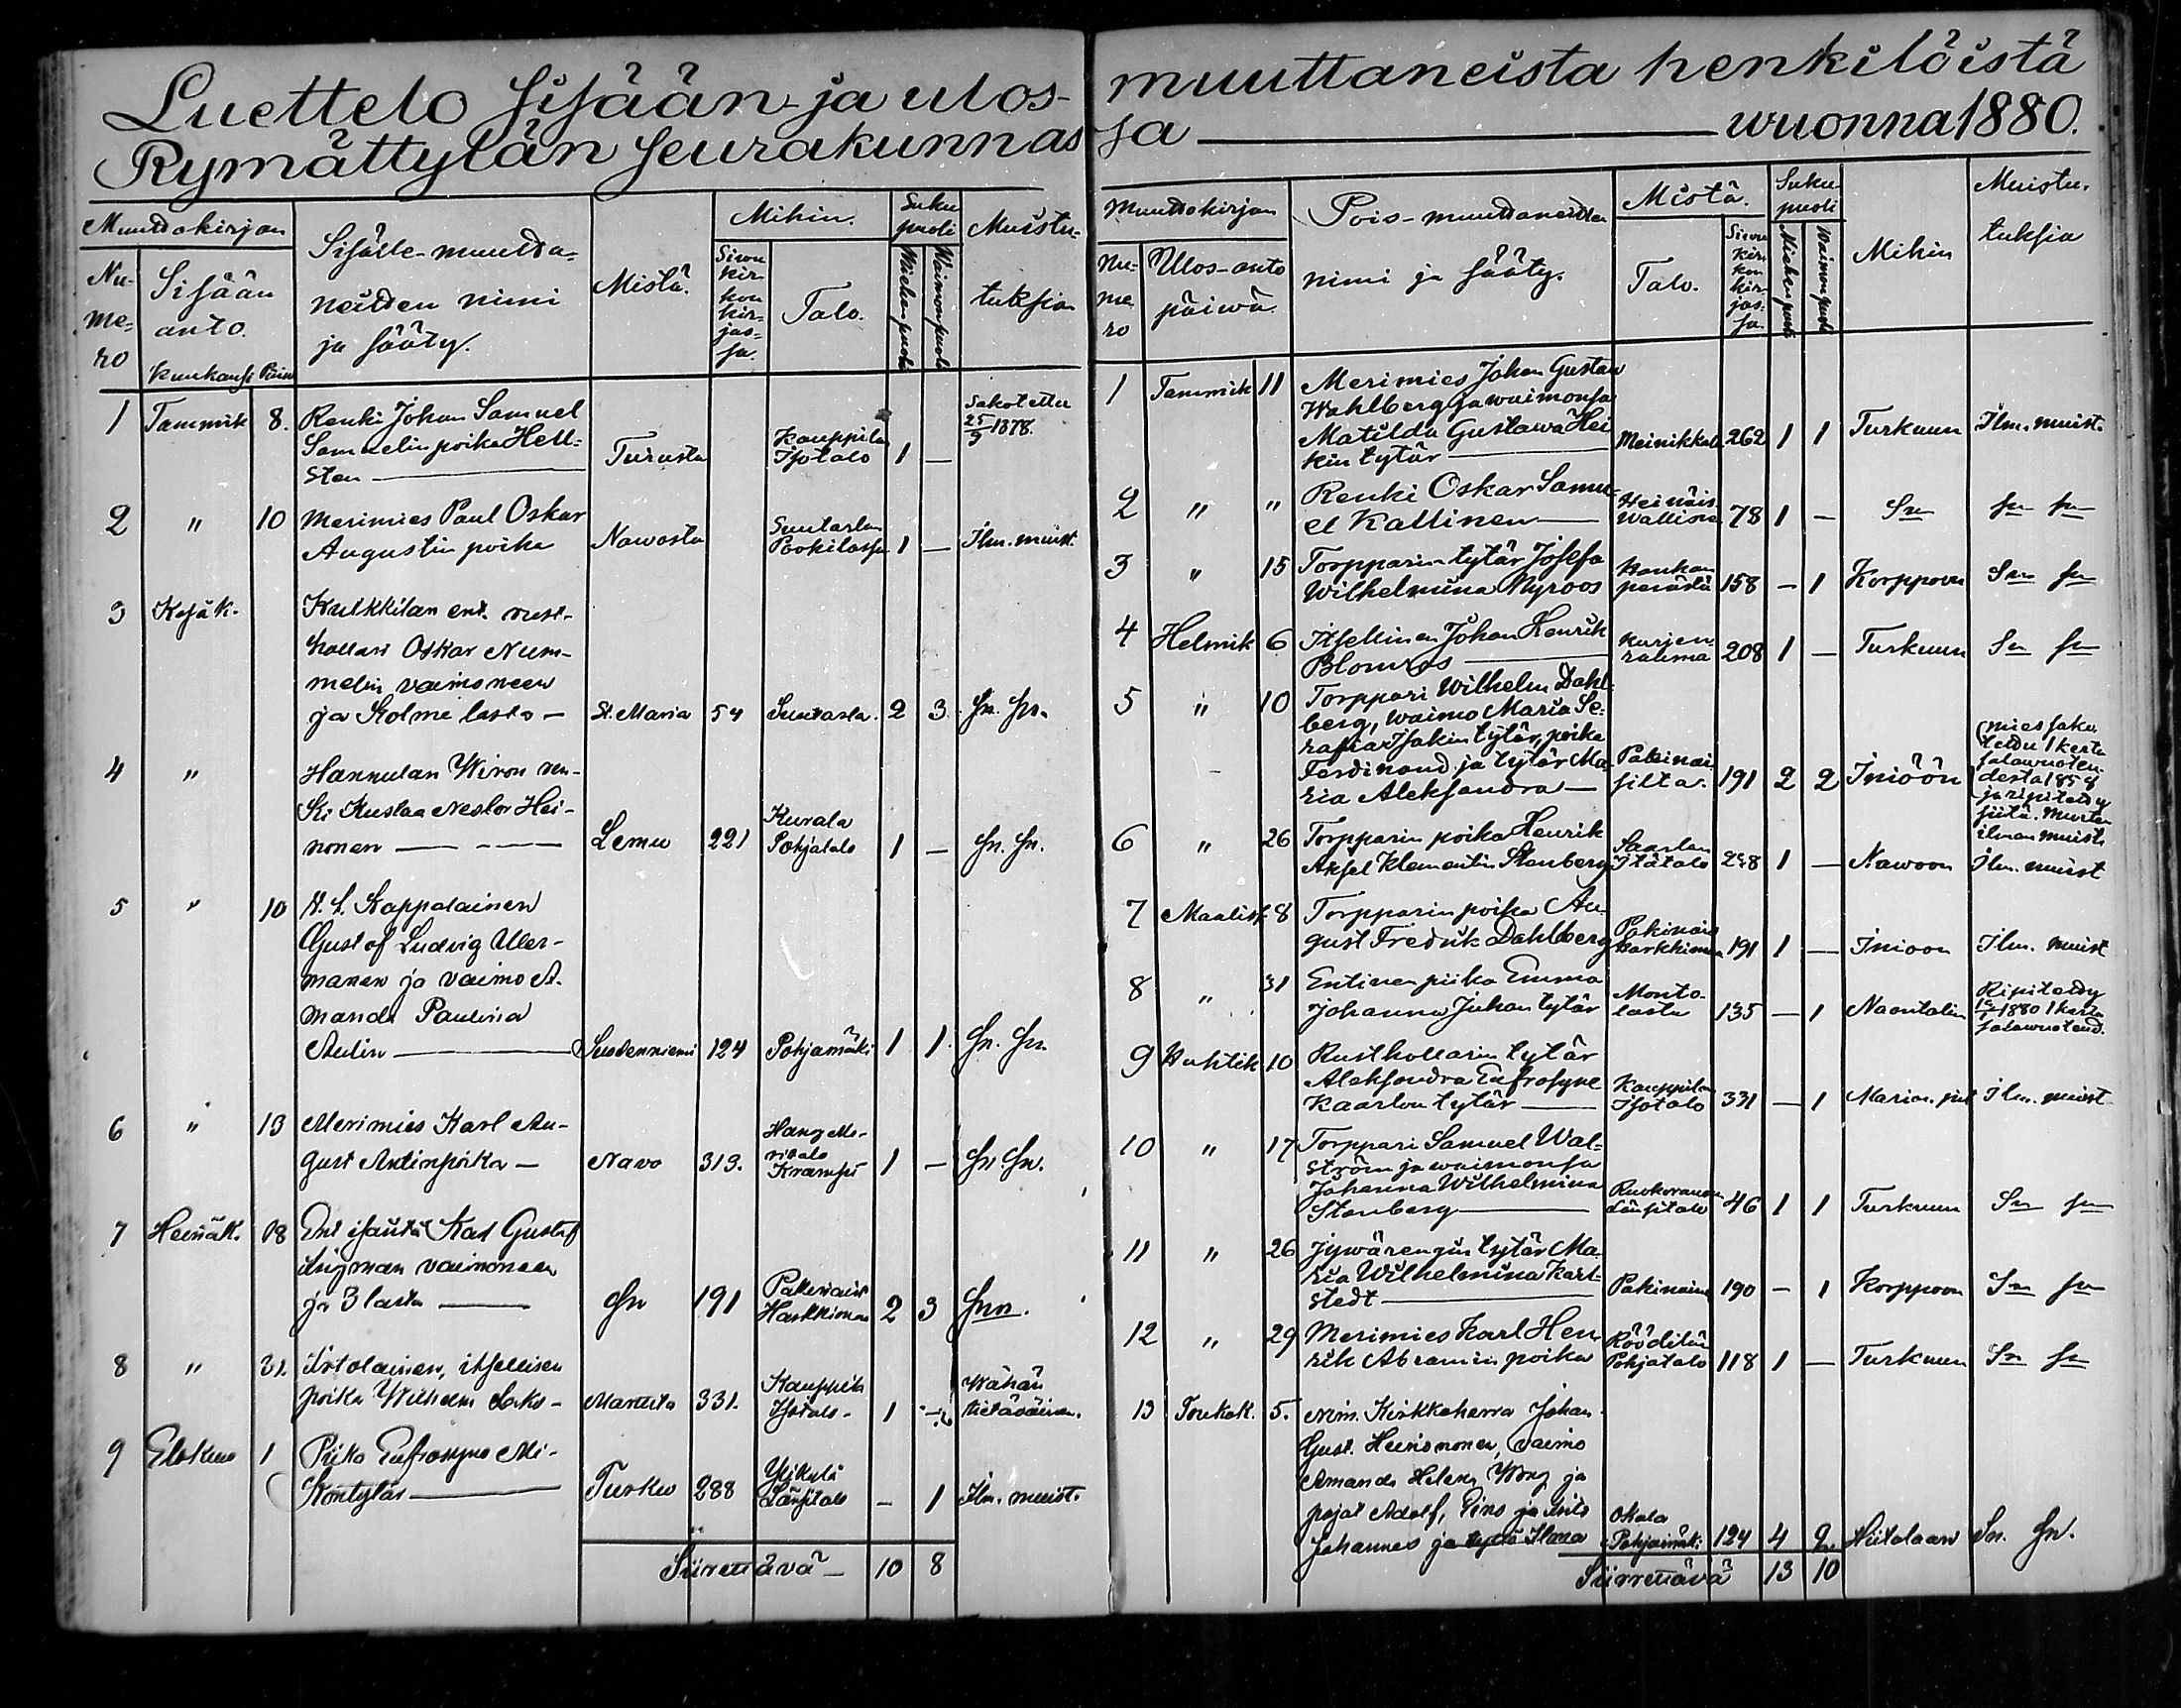 Luettelo sisään- ja ulos-
Rymättylän seurakunnas
Muuttokirjan
Nu-
me-
ro
Sisään
anto.
Kuukausi Päivä
Sisälle-muutta-
neitten nimi
ja sääty.
Mistä.
Mihin.
Sivu
kir-
kon
kir-
jas-
sa.
Talo.
Suku
puoli
Miehenpuoli
Waimonpuoli
Muistu-
tuksia
1 Tammik 8. Renki Johan Samuel
Samuelin poika Hell-
sten
Turusta
Kauppila
Isotalo
1 —
Sakotettu
25/9 1878.
2 " 10 Merimies Paul Oskar
Augustin poika
Nawosta
Suutarlan
1 — Ilm. muist.
3 Kesäk. Kulkkilan ent. rust-
hollari Oskar Num-
melin vaimoneen
ja Kolme lasta —
St. Maria 54 Suutarla. 2 3 Sn. Sn.
4 " Hannulan Wiron ren-
ki Kustaa Nestor Hei-
nonen
Lemu 221
Kurala
Pohjatalo
1 — Sn. Sn.
5 " 10 Kappalainen
Gustaf Ludvig
manen ja vaimo A-
manda Paulina
124 Pohjamäki 1 1. Sn. Sn.
6 " 13 Merimies Karl Au-
gust Antinpoika —
Navo 313.
1 — Sn. Sn.
7 Heinäk. 18 Ent isäntä Karl Gustaf
vaimoneen
ja 3 lasta
Sn 191
Pakinais
Harkkiman
2 3 Snn.
8 " 31. itsellisen
poika Wilhelm
331.
Kauppila
Isotalo-
1 —
Wähän
tietäväinen.
9 Elokuu 1 Piika Eufrosyne Mi-
kontytär
Turku 288
Ylikylä
Länsitalo
— 1 Ilm. muist.
Siirrettävä — 10 8
muuttaneista henkilöistä
sa wuonna 1880.
Muuttokirjan
Nu-
me-
ro
Ulos-anto
päiwä.
Pois-muuttaneitten
nimi ja sääty.
Mistä.
Talo.
Sivu
kir-
kon
kir-
jas-
sa.
Suku-
puoli
Miehenpuoli
Waimonpuoli
Mihin
Muistu-
tuksia
1 Tammik 11 Merimies Johan Gustav
Wahlberg ja waimonsa
Matilda Gustawa Hei
kin tytär
Meinikkala 262 1 1 Turkuun Ilm. muist.
2 " " Renki Oskar Samu-
el Kallinen
Heinäis
78 1 — Sn Sn Sn
3 " 15 Torpparin tytär Josefa
Wilhelmina Nyroos
Hanhan
perästä
158 — 1 Korppoon Sn Sn
4 Helmik 6 Itsellinen Johan Henrik
Blomros
Kurjen-
rauma
208 1 — Turkuun Sn Sn
5 " 10 Torppari Wilhelm Dahl-
berg, waimo Maria Se-
rafia Isakin tytär, poika
Ferdinand ja tytär Ma-
ria Aleksandra —
Pakinai
silta.
191 2 2 Iniöön
(mies sako
tettu 1 kerta
salawuoteu-
desta 1859
ja ripitetty
siitä. Muuten
ilman muist.
6 " 26 Torpparin poika Henrik
Aksel Klementin Stenberg
Saarlan
Itätalo
248 1 — Nawoon Ilm. muist
7 Maalisk. 8 Torpparin poika Au-
gust Fredrik Dahlberg
Pakinais
Harkkiman
191 1 — Iniöön Ilm. muist
8 " 31 Entinen piika Emma
Johanna Juhan tytär
Monto-
lasta
135 — 1 Naantaliin
Ripitetty
1880 1 kerta
salawuoteud.
9 Huhtik 10 Rusthollarin tytär
Aleksandra Eufrosyne
Kaarlon tytär
Kauppila
Isotalo
331 — 1 Marian. Ilm. muist
10 " 17 Torppari Samuel Wal-
ström ja waimonsa
Johanna Wilhelmina
Stenberg
Ruokorauman
Länsitalo
46 1 1 Turkuun Sn Sn
11 " 26 Jywärengin tytär Ma-
ria Wilhelmina Karl-
stedt
Pakinainen 190 — 1 Korppoon Sn Sn
12 " 29 Merimies Karl Hen
rik Abramin poika
Röödilän
Pohjatalo
118 1 — Turkuun Sn Sn
13 Toukok. 5. Nim. Kirkkoherra Johan
Gust. Heinonen, vaimo
Amanda Helena ja
pojat Adolf, Eino ja
Johannes ja tyttö Ilma
Pohjamäki 124 4 2. Hiitolaan Sn. Sn.
Siirrettävä 13 10